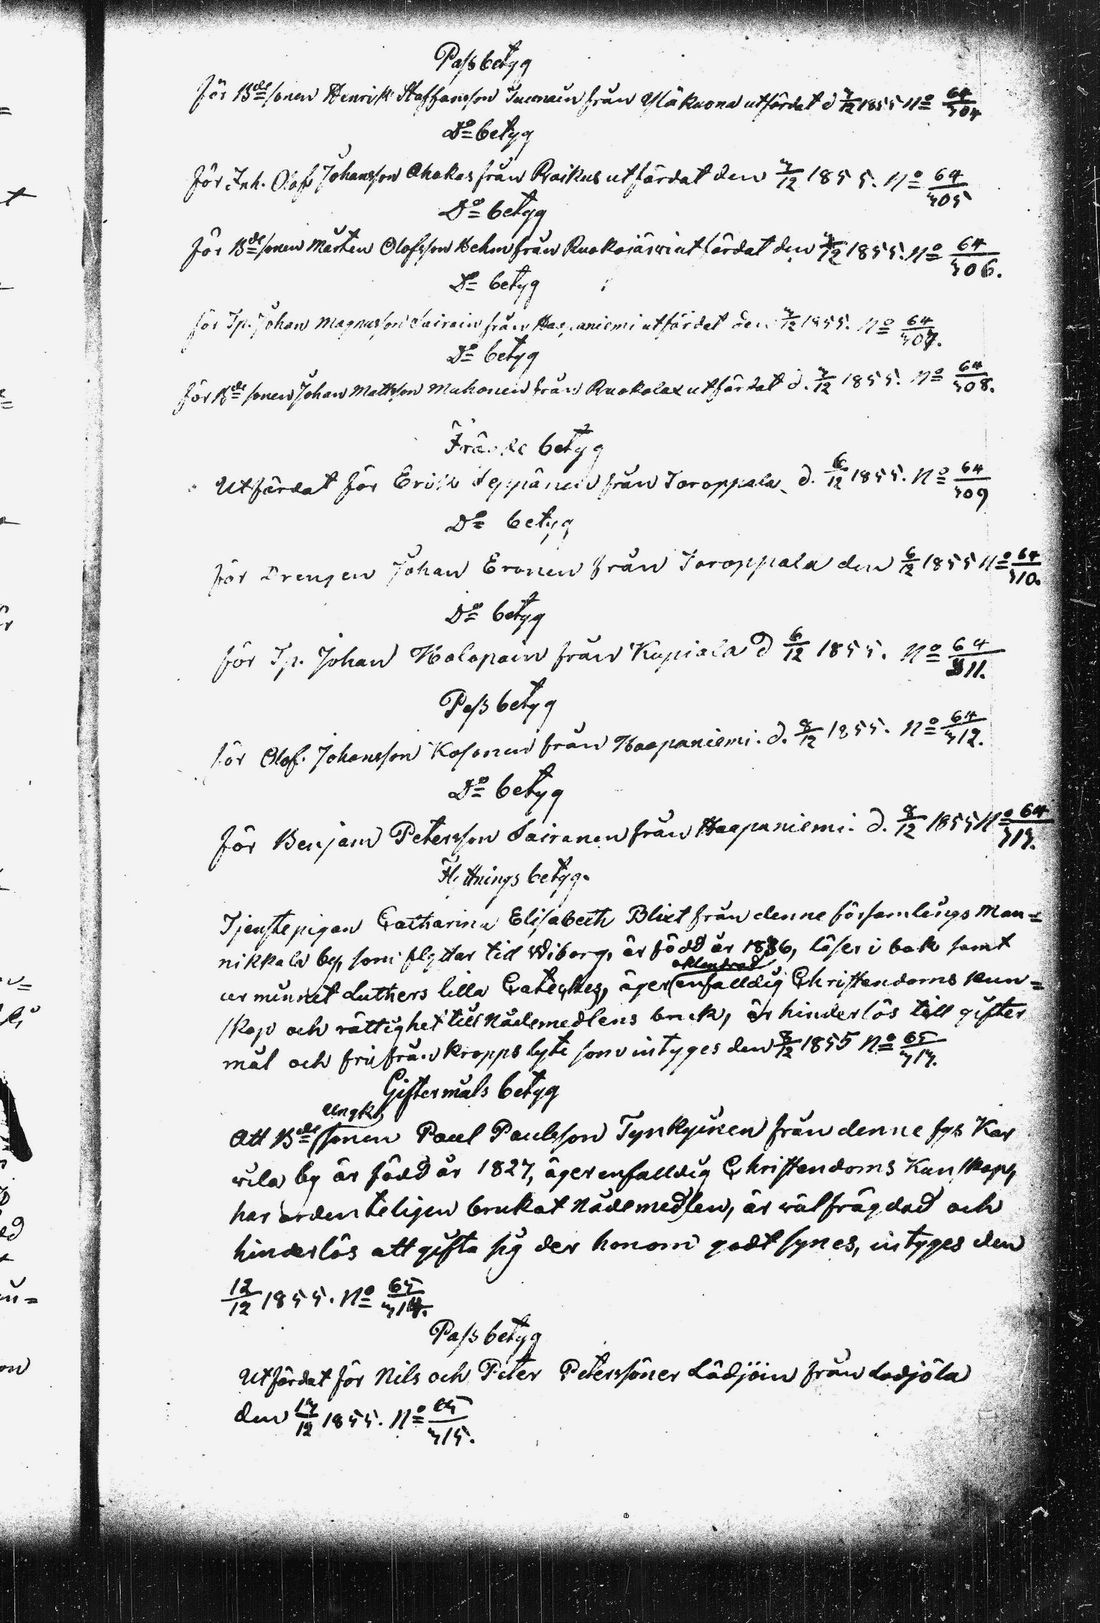 Passbetyg
för Bde sonen Henrik Staffansson från Yläkuona utfärdat d 3/12 1855 No 64/304
Do betyg
för Inh. Olof Johansson Ahokas från Raikus utfärdat den 3/12 1855. No 64/305
Do betyg
för Bde sonen Mårten Olofsson Behm från Ruokojärvi utfärdat den 3/12 1855. No 64/306.
Do betyg
för Tp. Johan Magnusson Sairain från Haapaniemi utfärdat den 3/12 1855. No 64/307.
Do betyg
för Bde sonen Johan Mattsson Muhonen från Ruokolax utfärdat d. 3/12 1855. No 64/308.
Frände betyg
Utfärdat för Erik Seppänen från Toroppala d. 6/12 1855. No 64/309
Do betyg
för Drengen Johan Eronen från Toroppala den 6/12 1855 No 64/310.
Do betyg
för Tp. Johan Holopain från Kupiala d 6/12 1855. No 64/311.
Pass betyg
för Olof Johansson Kosonen från Haapaniemi. d. 8/12 1855. No 64/312.
Do betyg
för Benjam Petersson Sairanen från Haapaniemi. d. 8/12 1855 No 64/313.
Flyttnings betyg.
Tjenstepigan Catharina Elisabeth Blixt från denne församlings Man=
nikkala by, som flyttar till Wiborg, är född år 1836, läser i bok samt
ur minnet Luthers lilla Cateches, äger enfalldig Christendoms kun=
skap och rättighet till Nådemedlens bruk, är hinderlös till gifter
mål och fri från kroppslyte som intyges den 8/12 1855 No 65/313.
Giftermåls betyg
ungk.
Att Bde sonen Paul Paulsson Tynkkynen från denne fgs Kar
vila by är född år 1827, äger enfalldig Christendoms Kunskap,
har ordenteligen brukat Nådemedlen, är välfrägdad och
hinderlös att gifta sig der honom godt synes, intyges den
12/12 1855. No 65/314.
Pass betyg
Utfärdat för Nils och Peter Peterssöner Lädjöin från Ladjöla
den 13/12 1855. No 65/315.